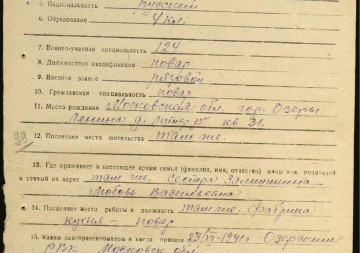 5. Национальность русский
6. Образование 4 кл.
7. Военно-учетная специальность 124
8. Должностная квалификация повар
9. Военное звание рядовой
10. Гражданская специальность повар
11. Место рождения Московская обл. гор. Озеры
Ленина д. кв 31.
12. Последнее место жительства там же.
13. Где проживает в настоящее время семья (фамилия, имя, отчество) жены или родителей
и точный их адрес там же. Сестра
Любовь Васильевна
14. Последнее место работы и должность там же. фабрика
кухня — повар
15. Каким райвоенкоматом и когда призван 23/VI-1941 г Озерским
РВК Московск обл